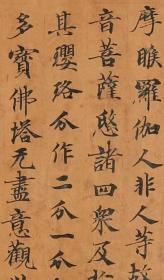 摩睺羅伽人非人等故
音菩薩愍諸四衆及
其瓔珞分作二分一分
多寶佛塔无盡意觀